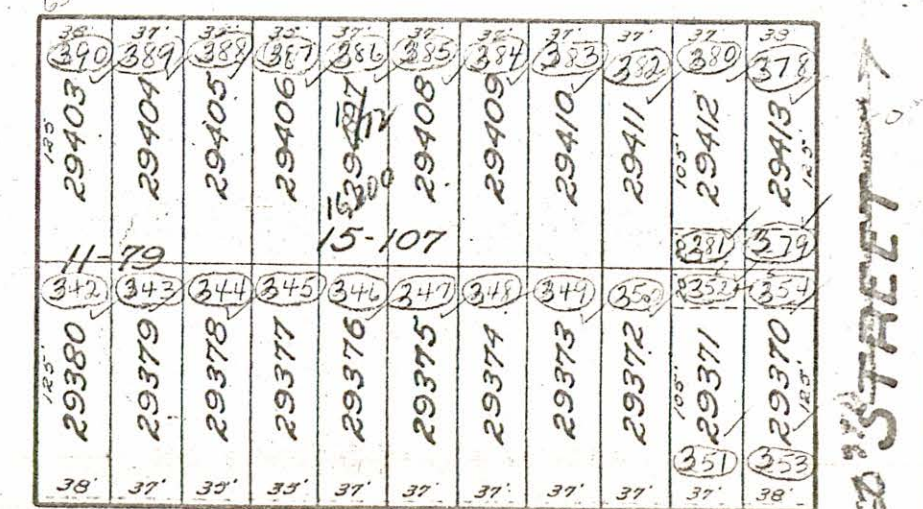 38' 37' 35' 35' 37' 37' 36' 37' 37' 37' 38'
390 389 388 387 386 385 384 383 382 380 378
125' 29403 29404 29405 29406 29408 29409 29410 29411 105' 29412 29413 125'
381 379
11-79 15-107
342 343 344 345 346 347 348 349 350 352 354
125' 29380 29379 29378 29377 29376 29375 29374 29373 29372 105' 29371 29370 125'
351 353
38' 37' 35' 35' 37' 37' 37' 37' 37' 37' 38'
STREET